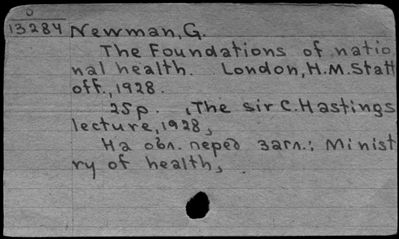 0
13284 Newman, G.
The Foundations of natio
nal health. London, H.M. Statt
off., 1928.
25p. (The sir C. Hastings
lecture, 1928)
На обл. перед загл.: Minist
ry of health)